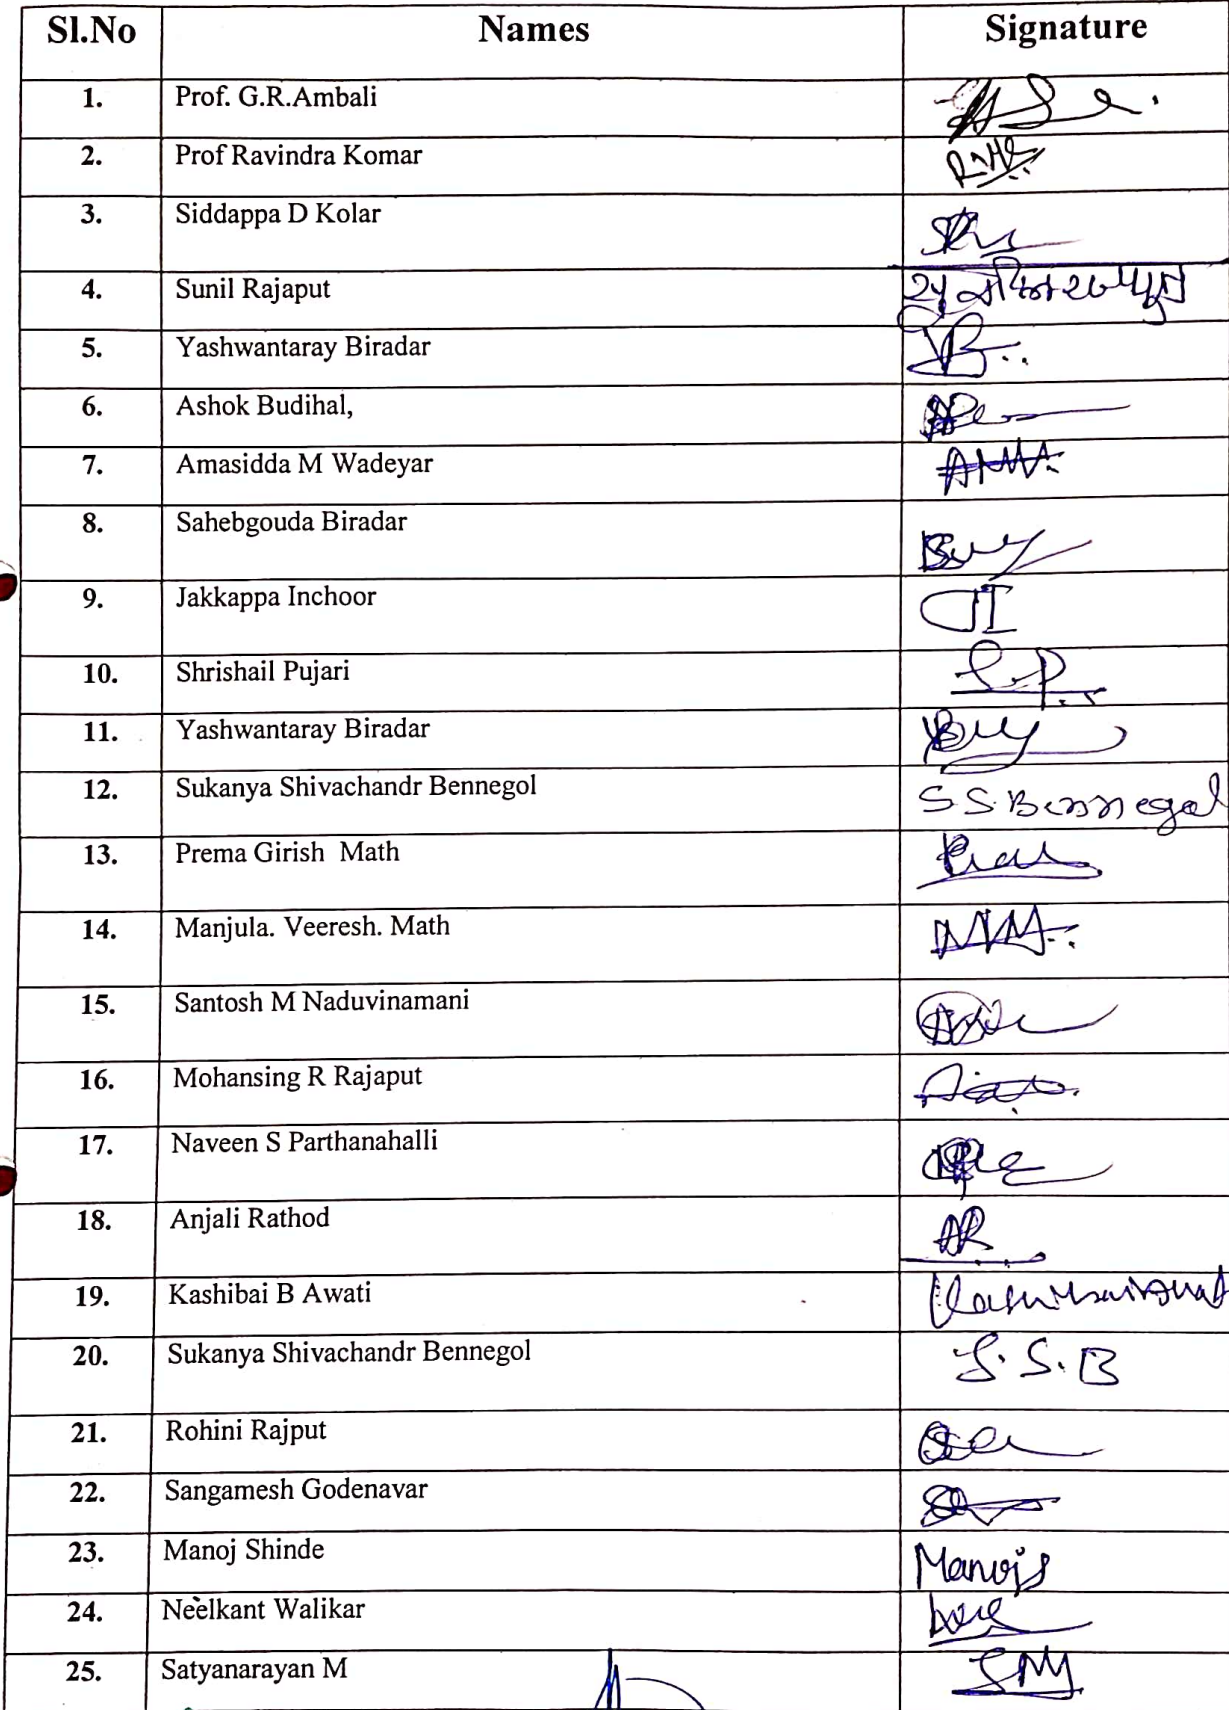 Sl.No Names Signature
1. Prof. G.R.Ambali
2. Prof Ravindra Komar
3. Siddappa D Kolar
4. Sunil Rajaput
5. Yashwantaray Biradar
6. Ashok Budihal,
7. Amasidda M Wadeyar
8. Sahebgouda Biradar
9. Jakkappa Inchoor JI
10. Shrishail Pujari
11. Yashwantaray Biradar
12. Sukanya Shivachandr Bennegol S S Bennegol
13. Prema Girish Math
14. Manjula. Veeresh. Math
15. Santosh M Naduvinamani
16. Mohansing R Rajaput
17. Naveen S Parthanahalli
18. Anjali Rathod AR
19. Kashibai B Awati
20. Sukanya Shivachandr Bennegol S. S. B
21. Rohini Rajput
22. Sangamesh Godenavar
23. Manoj Shinde Manojs
24. Neelkant Walikar
25. Satyanarayan M